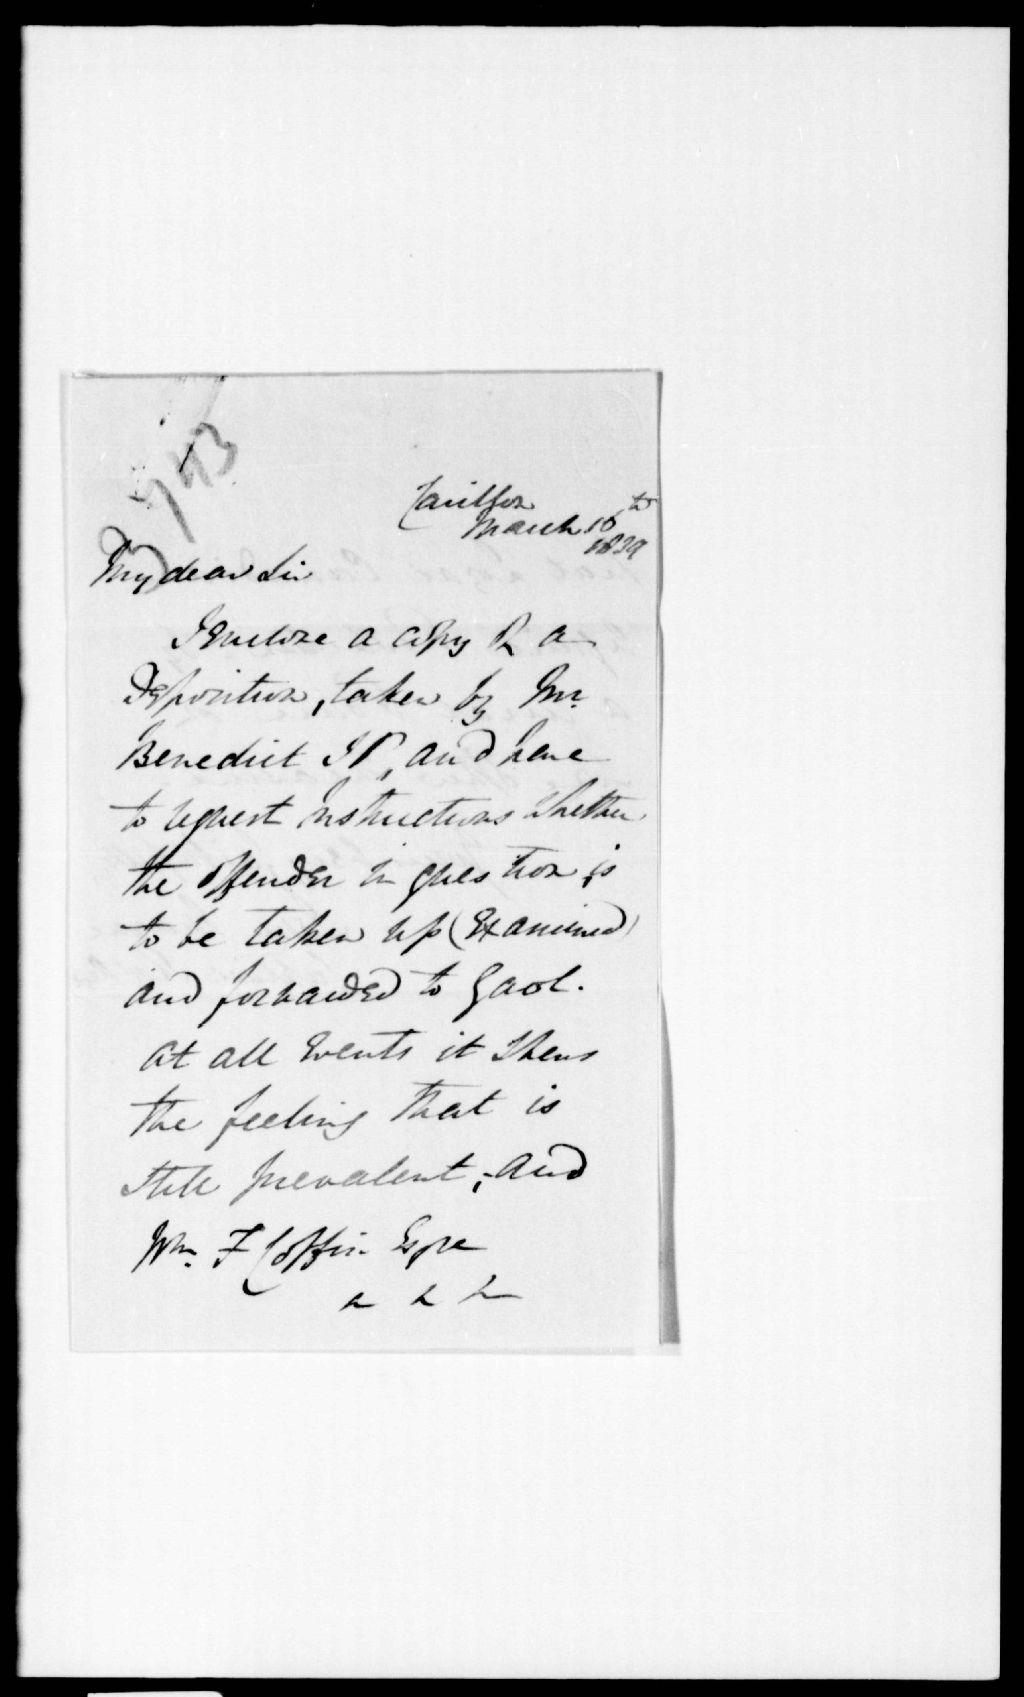 743
Carillon
March 16th
1839
My dear Sir
I enclose a copy of a
Deposition, taken by Mr.
Benedict JP, and have
to request instructions whether
the offender in question is
to be taken up (Examined)
and forwarded to Gaol.
at all Events it Shews
the feeling that is
still prevalent; and
Wm. F Coffin Esqre